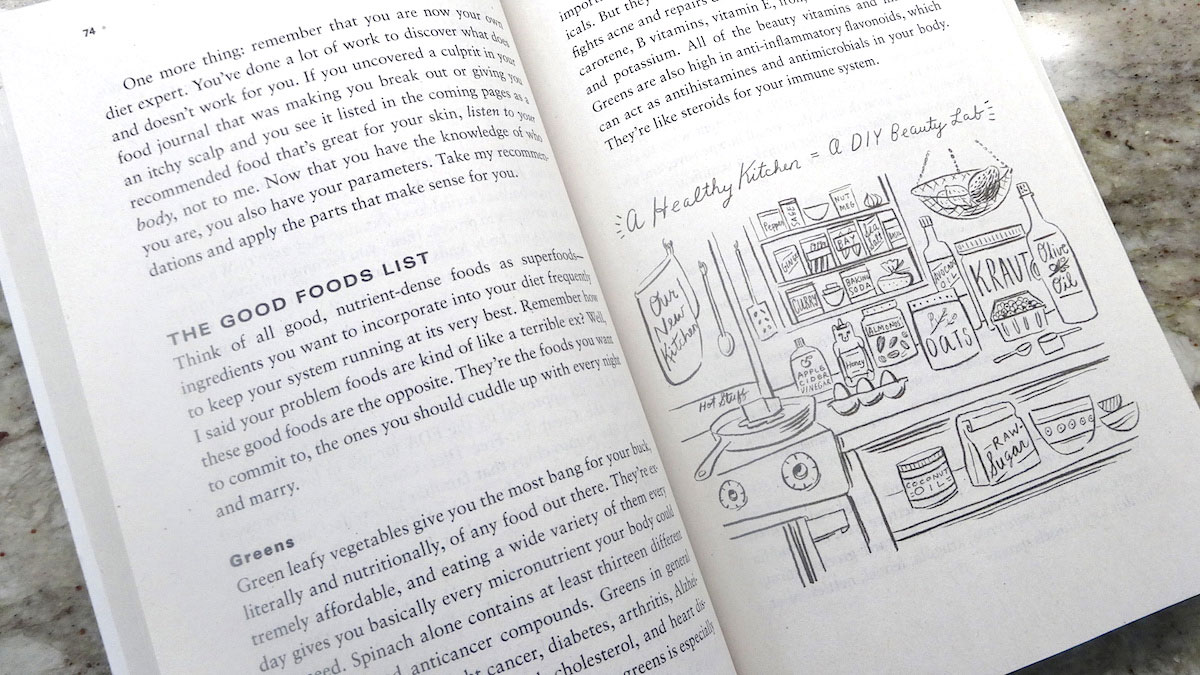 74
One more thing: remember that you are now your own
diet expert. You've done a lot of work to discover what does
and doesn't work for you. If you uncovered a culprit in your
food journal that was making you break out or giving you
an itchy scalp and you see it listed in the coming pages as a
recommended food that's great for your skin, listen to your
body, not to me. Now that you have the knowledge of who
you are, you also have your parameters. Take my recommen-
dations and apply the parts that make sense for you.
THE GOOD FOODS LIST
Think of all good, nutrient-dense foods as superfoods—
ingredients you want to incorporate into your diet frequently
to keep your system running at its very best. Remember how
I said your problem foods are kind of like a terrible ex? Well,
these good foods are the opposite. They're the foods you want
to commit to, the ones you should cuddle up with every night
and marry.
Greens
Green leafy vegetables give you the most bang for your buck,
literally and nutritionally, of any food out there. They're ex-
tremely affordable, and eating a wide variety of them every
day gives you basically every micronutrient your body could
need. Spinach alone contains at least thirteen different
anticancer compounds. Greens in general
cancer, diabetes, arthritis, Alzhei-
cholesterol, and heart dis-
greens is especially
icals. But they
fights acne and repairs
carotene, B vitamins, vitamin E,
and potassium. All of the beauty vitamins and
Greens are also high in anti-inflammatory flavonoids, which
can act as antihistamines and antimicrobials in your body.
They're like steroids for your immune system.
A Healthy Kitchen = A DIY Beauty Lab
Our
New
Kitchen
Pepper
SAGE
NUT
MEG
GINGER
BAY
Sea
Salt
CURRY
BAKING
SODA
AVOCADO
OIL
KRAUT
Olive
Oil
APPLE
CIDER
VINEGAR
Honey
ALMONDS
OATS
Hot Stuff
COCONUT
OIL
RAW
Sugar